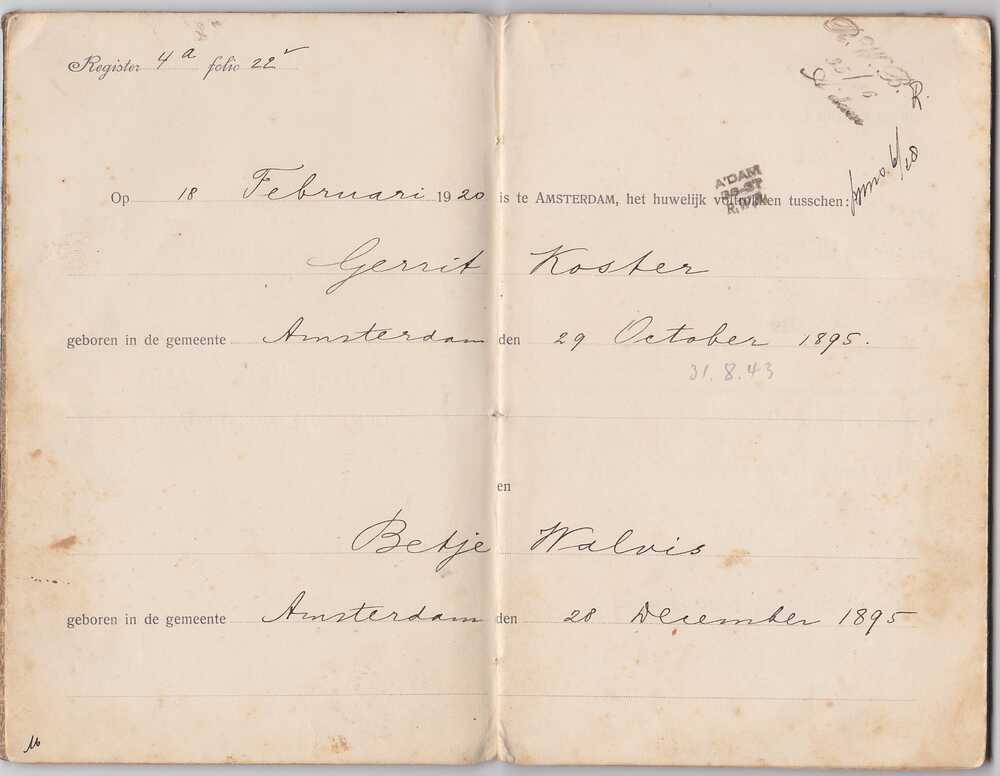 Register 4a folio 22v
R. W. B. R.
A'DAM
Op 18 Februari 1920 is te AMSTERDAM, het huwelijk voltrokken tusschen:
Gerrit Koster
geboren in de gemeente Amsterdam den 29 October 1895.
31.8.43
en
Betje Walvis
geboren in de gemeente Amsterdam den 28 December 1895